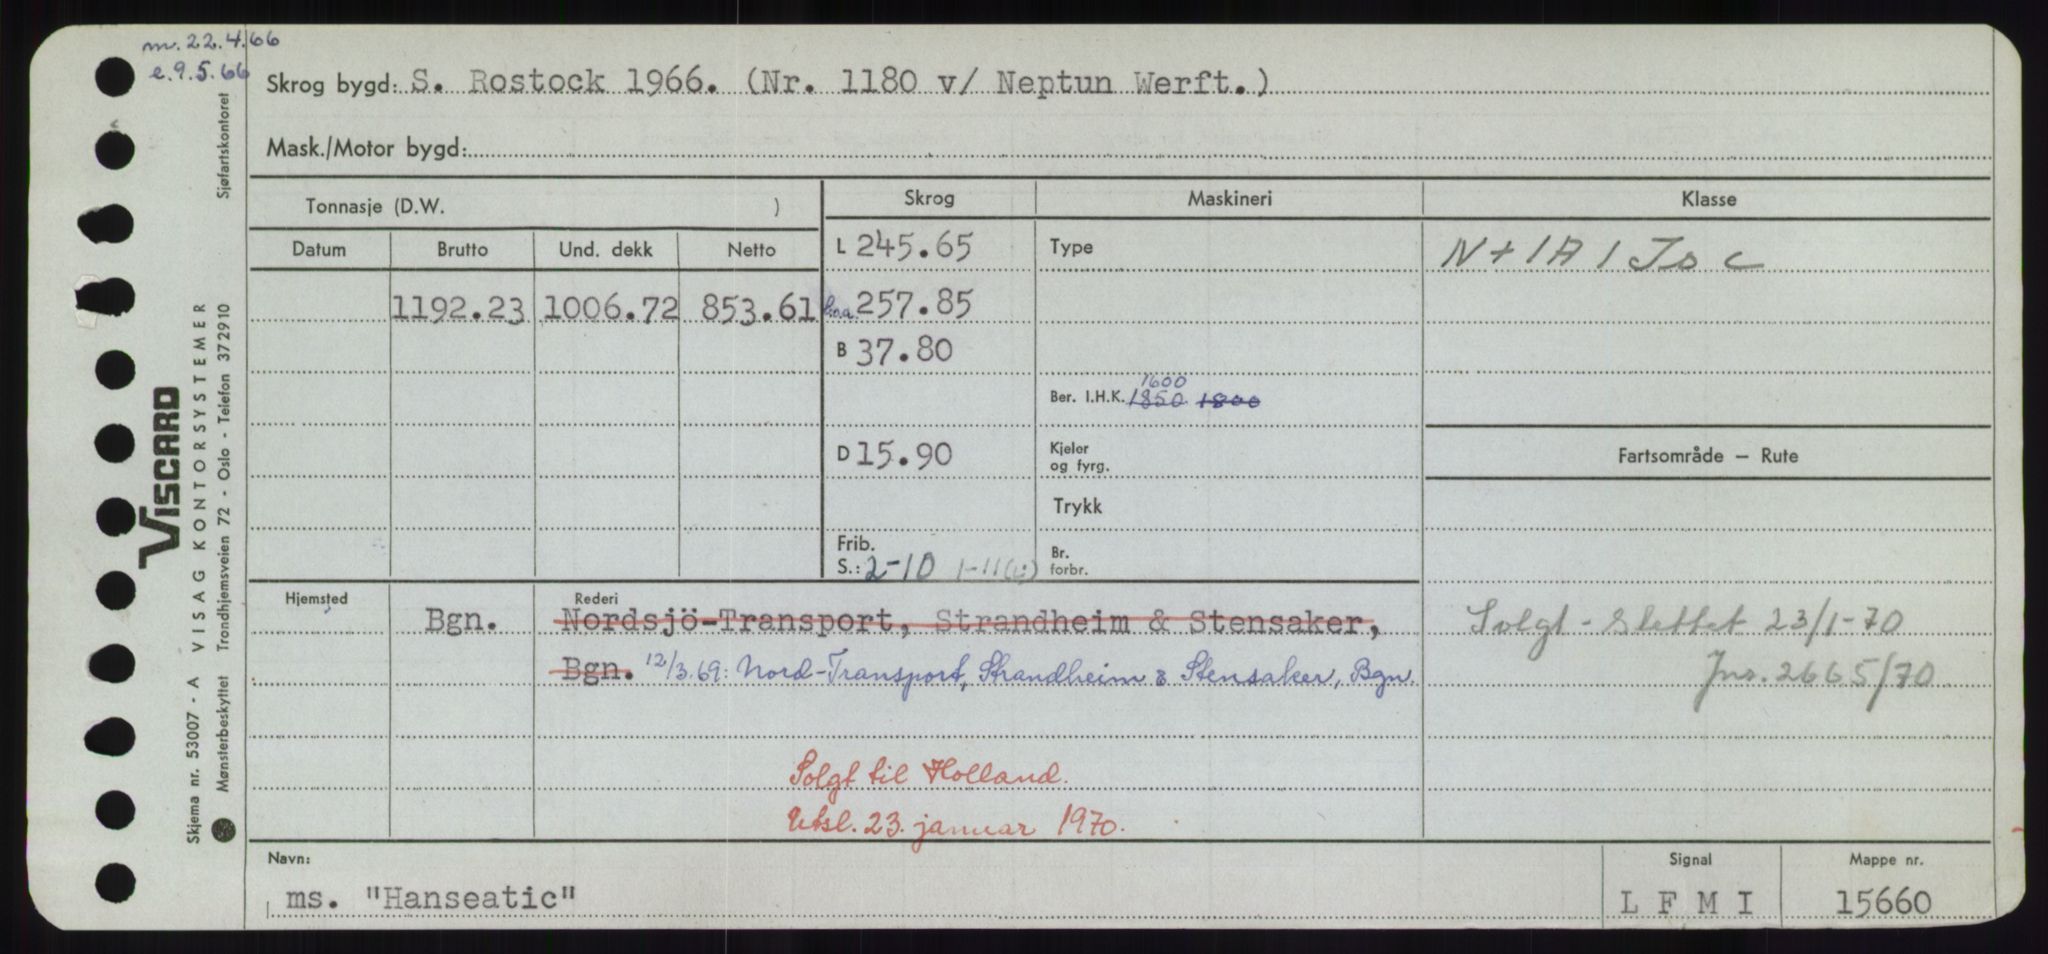 m. 22.4.66
e. 9.5.66
Skrog bygd: S. Rostock 1966. (Nr. 1180 v/ Neptun Werft.)
Mask./Motor bygd:
Tonnasje (D.W. )
Skrog Maskineri Klasse
Datum Brutto Und. dekk Netto
L 245.65 Type N+1A1 Is c
1192.23 1006.72 853.61 l.o.a. 257.85
B 37.80
1600
Ber. I.H.K. 1850 1800
D 15.90 Kjeler og fyrg. Fartsområde – Rute
Trykk
Frib.
S.: 2-10 1-11(L) Br. forbr.
Hjemsted Rederi
Bgn. Nordsjö-Transport, Strandheim & Stensaker, Solgt - Slettet 23/1-70
Bgn. 12/3.69: Nord-Transport, Strandheim & Stensaker, Bgn. Jnr. 2665/70
Solgt til Holland.
Utsl. 23. januar 1970.
Navn: Signal Mappe nr.
ms. "Hanseatic" L F M I 15660
Skjema nr. 53007 - A VISAG KONTORSYSTEMER
Mønsterbeskyttet Trondhjemsveien 72 - Oslo - Telefon 372910 Sjøfartskontoret
VISCARD